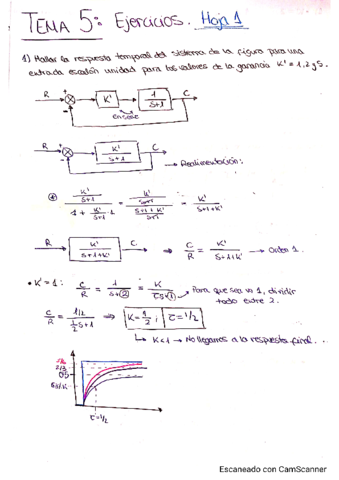 TEMA 5: Ejercicios. Hoja 1
1) Hallar la respuesta temporal del sistema de la figura para una
entrada escalón unidad para los valores de la ganancia K' = 1, 2 y 5.
R + - K' 1/(s+1) C
en serie
R + - K'/(s+1) C
→ Realimentación:
(K'/(s+1))/(1 + K'/(s+1) · 1) = (K'/(s+1))/((s+1+K')/(s+1)) = K'/(s+1+K')
R → K'/(s+1+K') → C ⇒ C/R = K'/(s+1+K') → Orden 1.
• K' = 1: C/R = 1/(s+2) = K/(τs+1) → Para que sea 1, dividir
todo entre 2.
C/R = (1/2)/(1/2 s+1) ⇒ K = 1/2 ; τ = 1/2
↳ K<1 → No llegamos a la respuesta final...
τ = 1/2
Escaneado con CamScanner